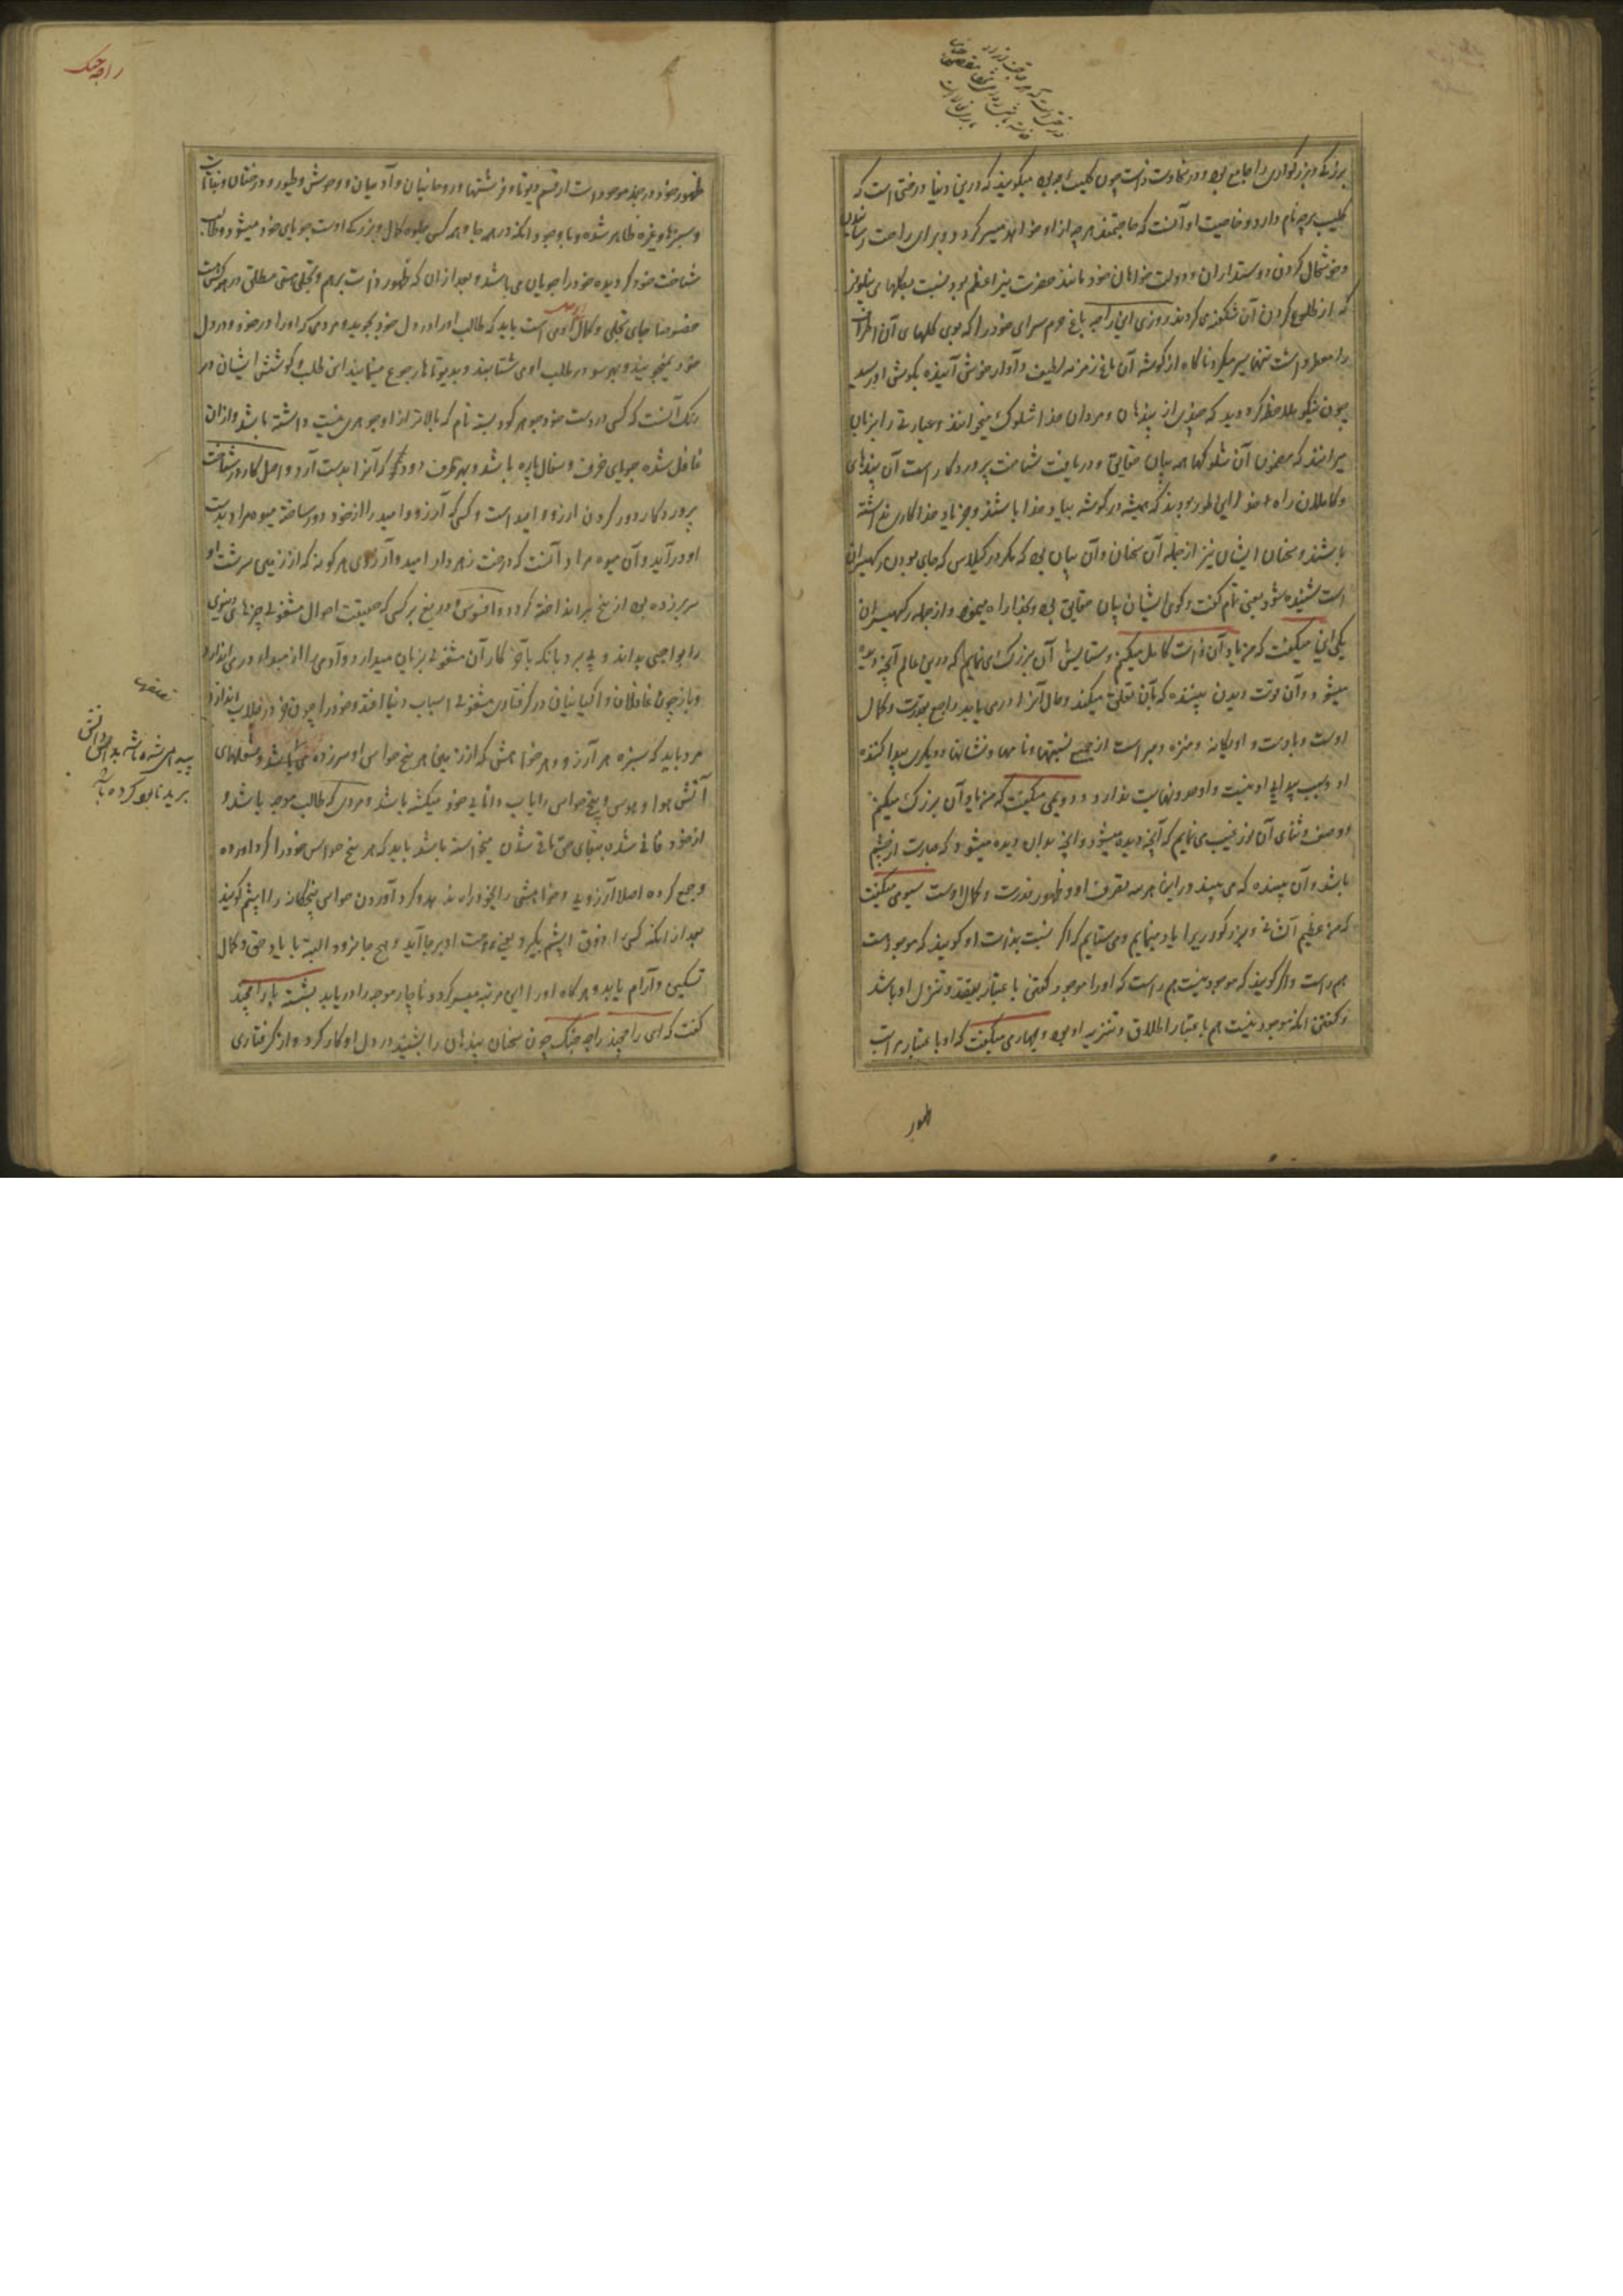 بزرگ و بزرگواری را جامع بود و در سخاوت ذات چون کلپ برچه بود میگویند که درین دنیا درختی است که
کلیپ برچه نام دارد و خاصیت او آنست که حاجتمند هر چه از او خواهد میسر گردد و برای راحت رسانیدن
و خوشحال کردن دوستداران و دولت خواهان خود مانند حضرت نیر اعظم بود نسبت بگلهای نیلوفر
که از طلوع کردن آن شکفته می گردند روزی این راجه بباغ حرم سرای خود را که بوی گلهای آن اطراف
را معطر داشت تنها سیر میکرد ناگاه از گوشه آن باغ زمزمه لطیف و آواز خوش آینده بگوش او رسید
چون نیکو ملاحظه کرد دید که چندی از سدهان و مردان خدا شلوک میخوانند و عبارتی را بزبان
میرانند که مضمون آن شلوکها همه بیان حقایق و دریافت شناخت پروردگار است آن سدهای
و کاملان راه خدا این طور بودند که همیشه در گوشه بیاد خدا باشند و جز یاد خدا کاری نداشته
باشند و سخنان ایشان نیز از جمله آن سخنان و آن بیان بود که مکرر در کیلاس که جای بودن رکهیسران
است شنیده شود یعنی تمام گفت و گوی ایشان بیان حقایق بود و بخدا راه مینمود و از جمله رکهیسران
یکی این میگفت که من یاد آن ذات کامل میکنم و ستایش آن بزرگ می نمایم که درین عالم آنچه دیده
میشود و آن قوت دیدن بیننده که بآن تعلق میکند و مآل آنرا در می یابد راجع بقدرت و کمال
اوست و با اوست و او یگانه و منزه و مبرا است از جمیع نسبتها و نامها و نشانها و دیگری پیدا کننده
او و سبب پیدایی او نیست و او حد و نهایت ندارد و دویمی میگفت که من یاد آن بزرگ میکنم
و وصف و ثنای آن نور غیب می نمایم که آنچه دیده میشود و آنچه بدان دیده میشود که عبارت از چشم
باشد و آن بیننده که می بیند درین هر سه تصرف او و ظهور قدرت و کمال اوست سیومی میگفت
که من عظیم الشانی و بزرگواریرا یاد مینمایم و می ستایم که اگر نسبت بذات او گویند که موجود است
هم راست و اگر گویند که موجود نیست هم راست که او را موجود گفتن باعتبار تقید و تنزل او باشد
و گفتن آنکه موجود نیست هم باعتبار اطلاق و تنزیه او بود و چهارمی میگفت که او باعتبار مراتب
ظهور
راجه جنک
ظهور خود در جمیع موجودات از قسم دیوتا و فرشتها و روحانیان و آدمیان و وحوش و طیور و درختان و نباتات
و سبزها و غیره ظاهر شده و با وجود آنکه در همه جا و همه کس جلوه کمال و بزرگی اوست جویای خود میشود و طالب
شناخت خود گردیده خود را جویان می باشد و بعد از آن که ظهور ذات برهم و تجلی هستی مطلق در هر کس است
خصوصا جای تجلی و کمال آدمی است باید که طالب او را در دل خود بجوید و مردمی که او را در خود و در دل
خود نمیجویند و بهر سو در طلب او می شتابند و بدیوتاها رجوع مینمایند این طلب و کوشش ایشان در
رنگ آنست که کسی از دست خود جوهر کوستبه نام که بالاتر از او جوهری نیست داشته باشد و از آن
غافل شده جویای خزف و سفال پاره باشد و بهر طرف دود که آنرا بدست آرد و اصل کار در شناخت
پروردگار دور کردن آرزو و امید است و کسی که آرزو و امید را از خود دور ساخته میوه مراد بدست
او در آید و آن میوه مراد آنست که درخت زهردار امید و آرزوی هر گونه که از زمین سرشت او
سر بر زده بود از بیخ بر انداخته گردد و افسوس و دریغ بر کسی که حقیقت احوال مشغولی چیزهای دنیوی
را بواجبی بداند و پی برد بآنکه بآخر کار آن مشغولی بزیان میدارد و آدمی را از مبدا دور می اندازد
و باز چون غافلان و اگیانیان در گرفتاری مشغولی اسباب دنیا افتد و خود را چون خر در خلاب اندازد
مرد باید که سبزه هر آرزو و هر خواهش که از زمین هر پنج حواس او سر زده می باشد و شعلهای
آتش هوا و هوس و پنج حواس را بآب دانایی خود میکشته باشد و مردی که طالب موجد باشد و
از خود فانی شده ببقای حق باقی شدن میخواسته باشد باید که هر پنج حواس خود را گرد آورده
و جمع کرده اصلا آرزویی و خواهشی را بخود راه ندهد و گرد آوردن حواس پنجگانه را اپشم گویند
بعد از آنکه کسی را ذوق اپشم بگیرد یعنی وقت او بر جا آید و هیچ جا نرود البته با یاد حق و کمال
تسکین و آرام یابد و هر گاه او را این مرتبه میسر گردد ناچار موجد را دریابد بشسته با رامچند
گفت که ای رامچند راجه جنک چون سخنان سدهان را بشنید در دل او کار کرد و از گرفتاری